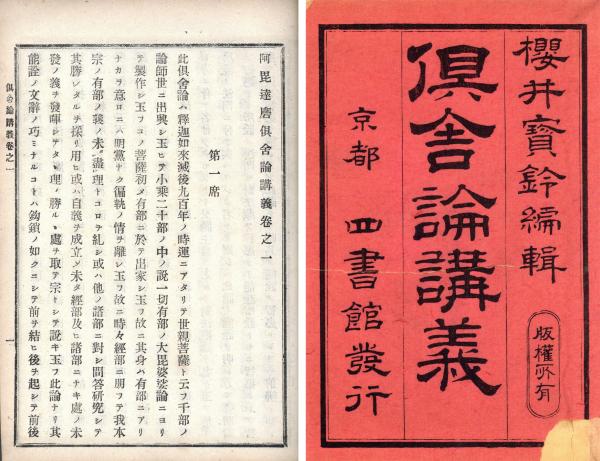 櫻井寶鈴編輯
倶舍論講義
京都 四書館發行
版權所有
阿毘達磨倶舍論講義卷之一
第一席
此倶舍論ハ釋迦如來滅後九百年ノ時運ニアタリテ世親菩薩ト云フ千部ノ
論師世ニ出興シ玉ヒテ小乘二十部ノ中ノ說一切有部ノ大毘婆娑論ニヨリ
テ製作シ玉フコノ菩薩初メ有部ニ於テ出家シ玉フ故ニ其身ハ有部ニアリ
ナカラ意ロニハ朋黨ナク偏執ノ情ヲ離シ玉フ故ニ時々經部ニ朋フテ我本
宗ノ有部ノ義ノ未タ盡理トコロヲ糺シ或ハ他ノ諸部ニ對シ問答研究シテ
其勝レタルヲ採リ用ヒ或ハ自義ヲ成立シ未タ經部及ヒ諸部ニナキ處ノ未
發ノ義ヲ發暉シテタヽ理ノ勝ルヽ處ヲ取テ宗トシテ說キ玉フ此論ナリ其
能詮ノ文辭ノ巧ミナルコトハ鈎鎖ノ如クニシテ前ヲ結ヒ後ヲ起シテ前後
倶舍論講義卷之一
一